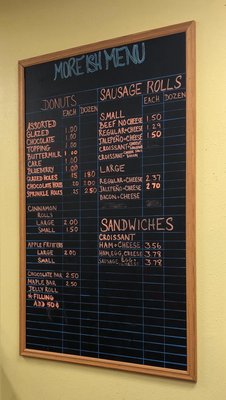 MORE ISH MENU
DONUTS
EACH DOZEN
ASSORTED
GLAZED 1.00
CHOCOLATE 1.00
TOPPING 1.00
BUTTERMILK 1.00
CAKE 1.00
BLUEBERRY 1.00
GLAZED HOLES 15 1.80
CHOCOLATE HOLES 20 2.00
SPRINKLE HOLES 25 2.50
CINNAMON
ROLLS
LARGE 2.00
SMALL 1.50
APPLE FRITTERS
LARGE 2.00
SMALL 1.50
CHOCOLATE BAR 2.50
MAPLE BAR 2.50
JELLY ROLL
* FILLING
ADD 50¢
SAUSAGE ROLLS
EACH DOZEN
SMALL
BEEF NO CHEESE 1.50
REGULAR + CHEESE 1.29
JALEPEÑO + CHEESE 1.50
CROISSANT
CROISSANT
LARGE
REGULAR + CHEESE 2.37
JALEPEÑO + CHEESE 2.70
BACON + CHEESE
SANDWICHES
CROISSANT
HAM + CHEESE 3.56
HAM, EGG, CHEESE 3.78
SAUSAGE, EGG, CHEESE 3.78